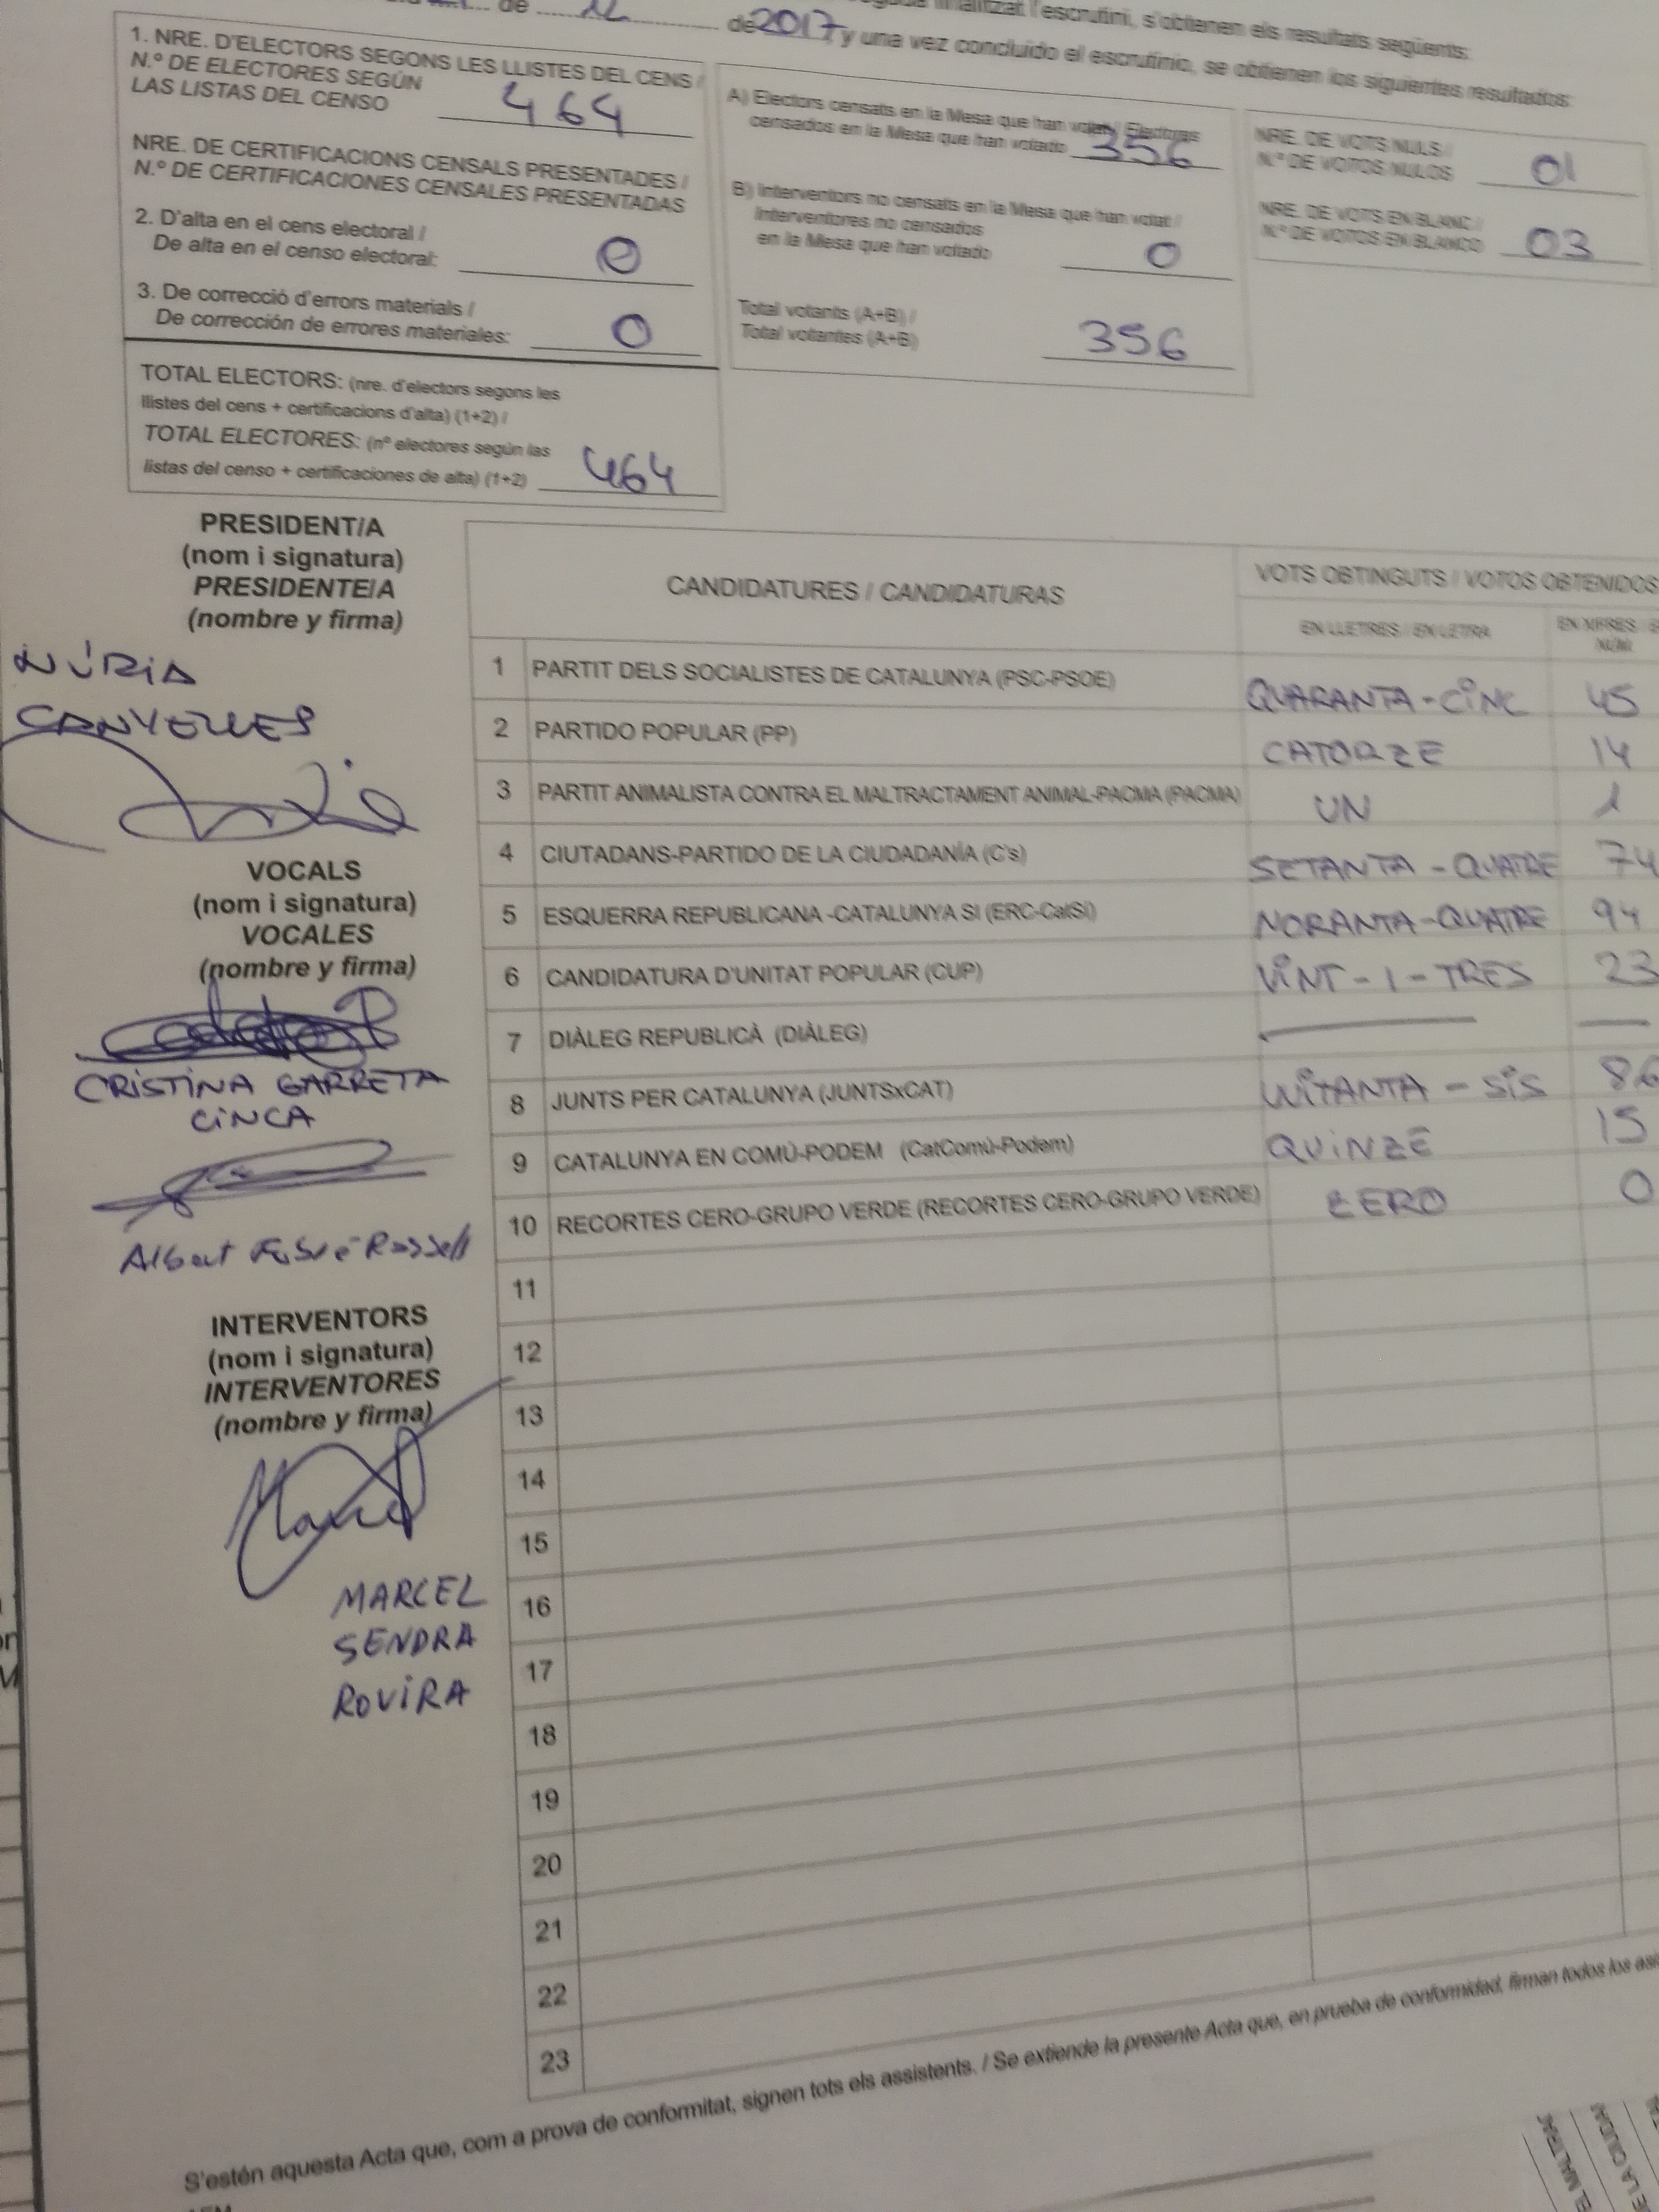 de 12 de 2017, y una vez concluido el escrutinio, se obtienen los siguientes resultados:
finalitzat l'escrutini, s'obtenen els resultats següents:
1. NRE. D'ELECTORS SEGONS LES LLISTES DEL CENS /
N.º DE ELECTORES SEGÚN
LAS LISTAS DEL CENSO 464
NRE. DE CERTIFICACIONS CENSALS PRESENTADES /
N.º DE CERTIFICACIONES CENSALES PRESENTADAS
2. D'alta en el cens electoral /
De alta en el censo electoral: 0
3. De correcció d'errors materials /
De corrección de errores materiales: 0
TOTAL ELECTORS: (nre. d'electors segons les
llistes del cens + certificacions d'alta) (1+2) /
TOTAL ELECTORES: (nº electores según las
listas del censo + certificaciones de alta) (1+2) 464
A) Electors censats en la Mesa que han votat / Electores
censados en la Mesa que han votado 356
B) Interventors no censats en la Mesa que han votat /
Interventores no censados
en la Mesa que han votado 0
Total votants (A+B) /
Total votantes (A+B) 356
NRE. DE VOTS NULS /
N.º DE VOTOS NULOS 01
NRE. DE VOTS EN BLANC /
N.º DE VOTOS EN BLANCO 03
PRESIDENT/A
(nom i signatura)
PRESIDENTE/A
(nombre y firma)
NÚRIA
CANYELLES
VOCALS
(nom i signatura)
VOCALES
(nombre y firma)
CRISTINA GARRETA
CINCA
Albert
INTERVENTORS
(nom i signatura)
INTERVENTORES
(nombre y firma)
MARCEL
SENDRA
ROVIRA
CANDIDATURES / CANDIDATURAS VOTS OBTINGUTS / VOTOS OBTENIDOS
EN LLETRES / EN LETRA EN XIFRES /
1 PARTIT DELS SOCIALISTES DE CATALUNYA (PSC-PSOE) QUARANTA-CINC 45
2 PARTIDO POPULAR (PP) CATORZE 14
3 PARTIT ANIMALISTA CONTRA EL MALTRACTAMENT ANIMAL-PACMA (PACMA) UN 1
4 CIUTADANS-PARTIDO DE LA CIUDADANÍA (C's) SETANTA - QUATRE 74
5 ESQUERRA REPUBLICANA -CATALUNYA SI (ERC-CatSí) NORANTA-QUATRE 94
6 CANDIDATURA D'UNITAT POPULAR (CUP) VINT - I - TRES 23
7 DIÀLEG REPUBLICÀ (DIÀLEG)
8 JUNTS PER CATALUNYA (JUNTSxCAT) UVITANTA - SIS 86
9 CATALUNYA EN COMÚ-PODEM (CatComú-Podem) QUINZE 15
10 RECORTES CERO-GRUPO VERDE (RECORTES CERO-GRUPO VERDE) ZERO 0
11
12
13
14
15
16
17
18
19
20
21
22
23
S'estén aquesta Acta que, com a prova de conformitat, signen tots els assistents. / Se extiende la presente Acta que, en prueba de conformidad, firman todos los